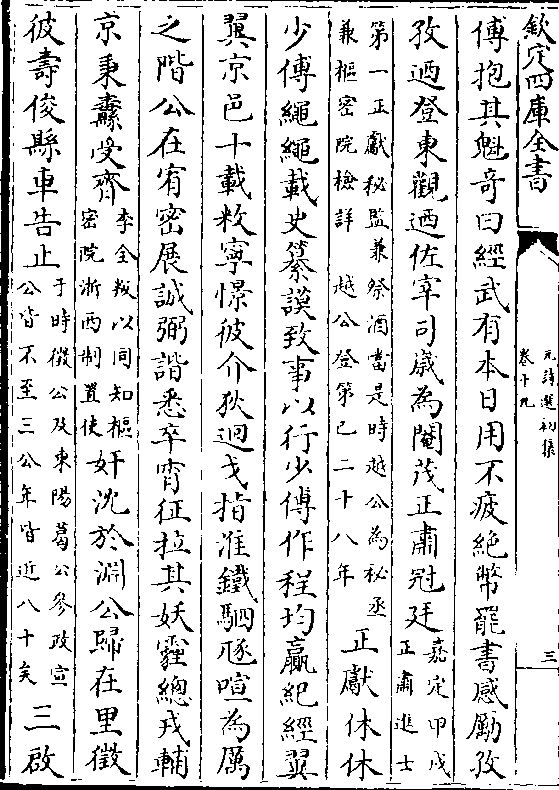 欽定四庫全書
元詩選初集
卷十九
三
傅抱其魁奇曰經武有本日用不疲絶幣罷書感勵孜
孜迺登東觀迺佐宰司歲為閹茂正肅冠廷嘉定甲戌
正肅進士
第一正獻秘監兼祭酒當是時越公為秘丞
兼樞密院檢詳 越公登第已二十八年正獻休休
少傅繩繩載史纂謨致事以行少傅作程均贏紀經翼
翼京邑十載敉寧憬彼介狄迴戈指淮鐵駟豗喧為厲
之階公在宥密展誠弼諧悉卒宵征拉其妖霾總戎輔
京秉纛受齊李全叛以同知樞
密院浙西制置使奸沈於淵公歸在里徵
彼壽俊縣車告止于時徵公及東陽葛公參政宣
公皆不至三公年皆近八十矣三啟